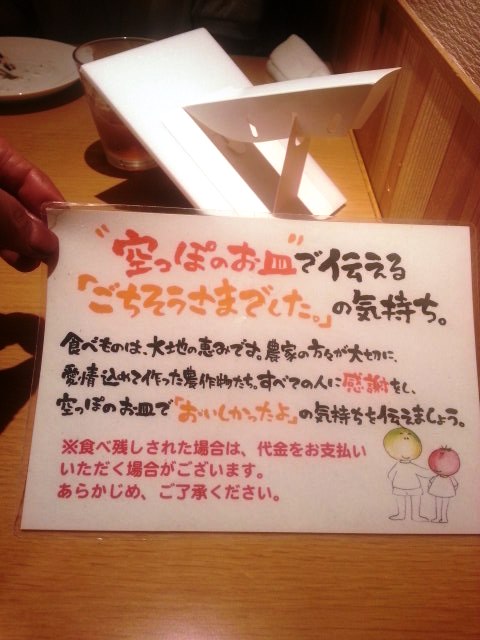 “空っぽのお皿”で伝える
「ごちそうさまでした。」の気持ち。
食べものは、大地の恵みです。農家の方々が大切に、
愛情込めて作った農作物たち。すべての人に感謝をし、
空っぽのお皿で「おいしかったよ」の気持ちを伝えましょう。
※食べ残しされた場合は、代金をお支払い
いただく場合がございます。
あらかじめ、ご了承ください。